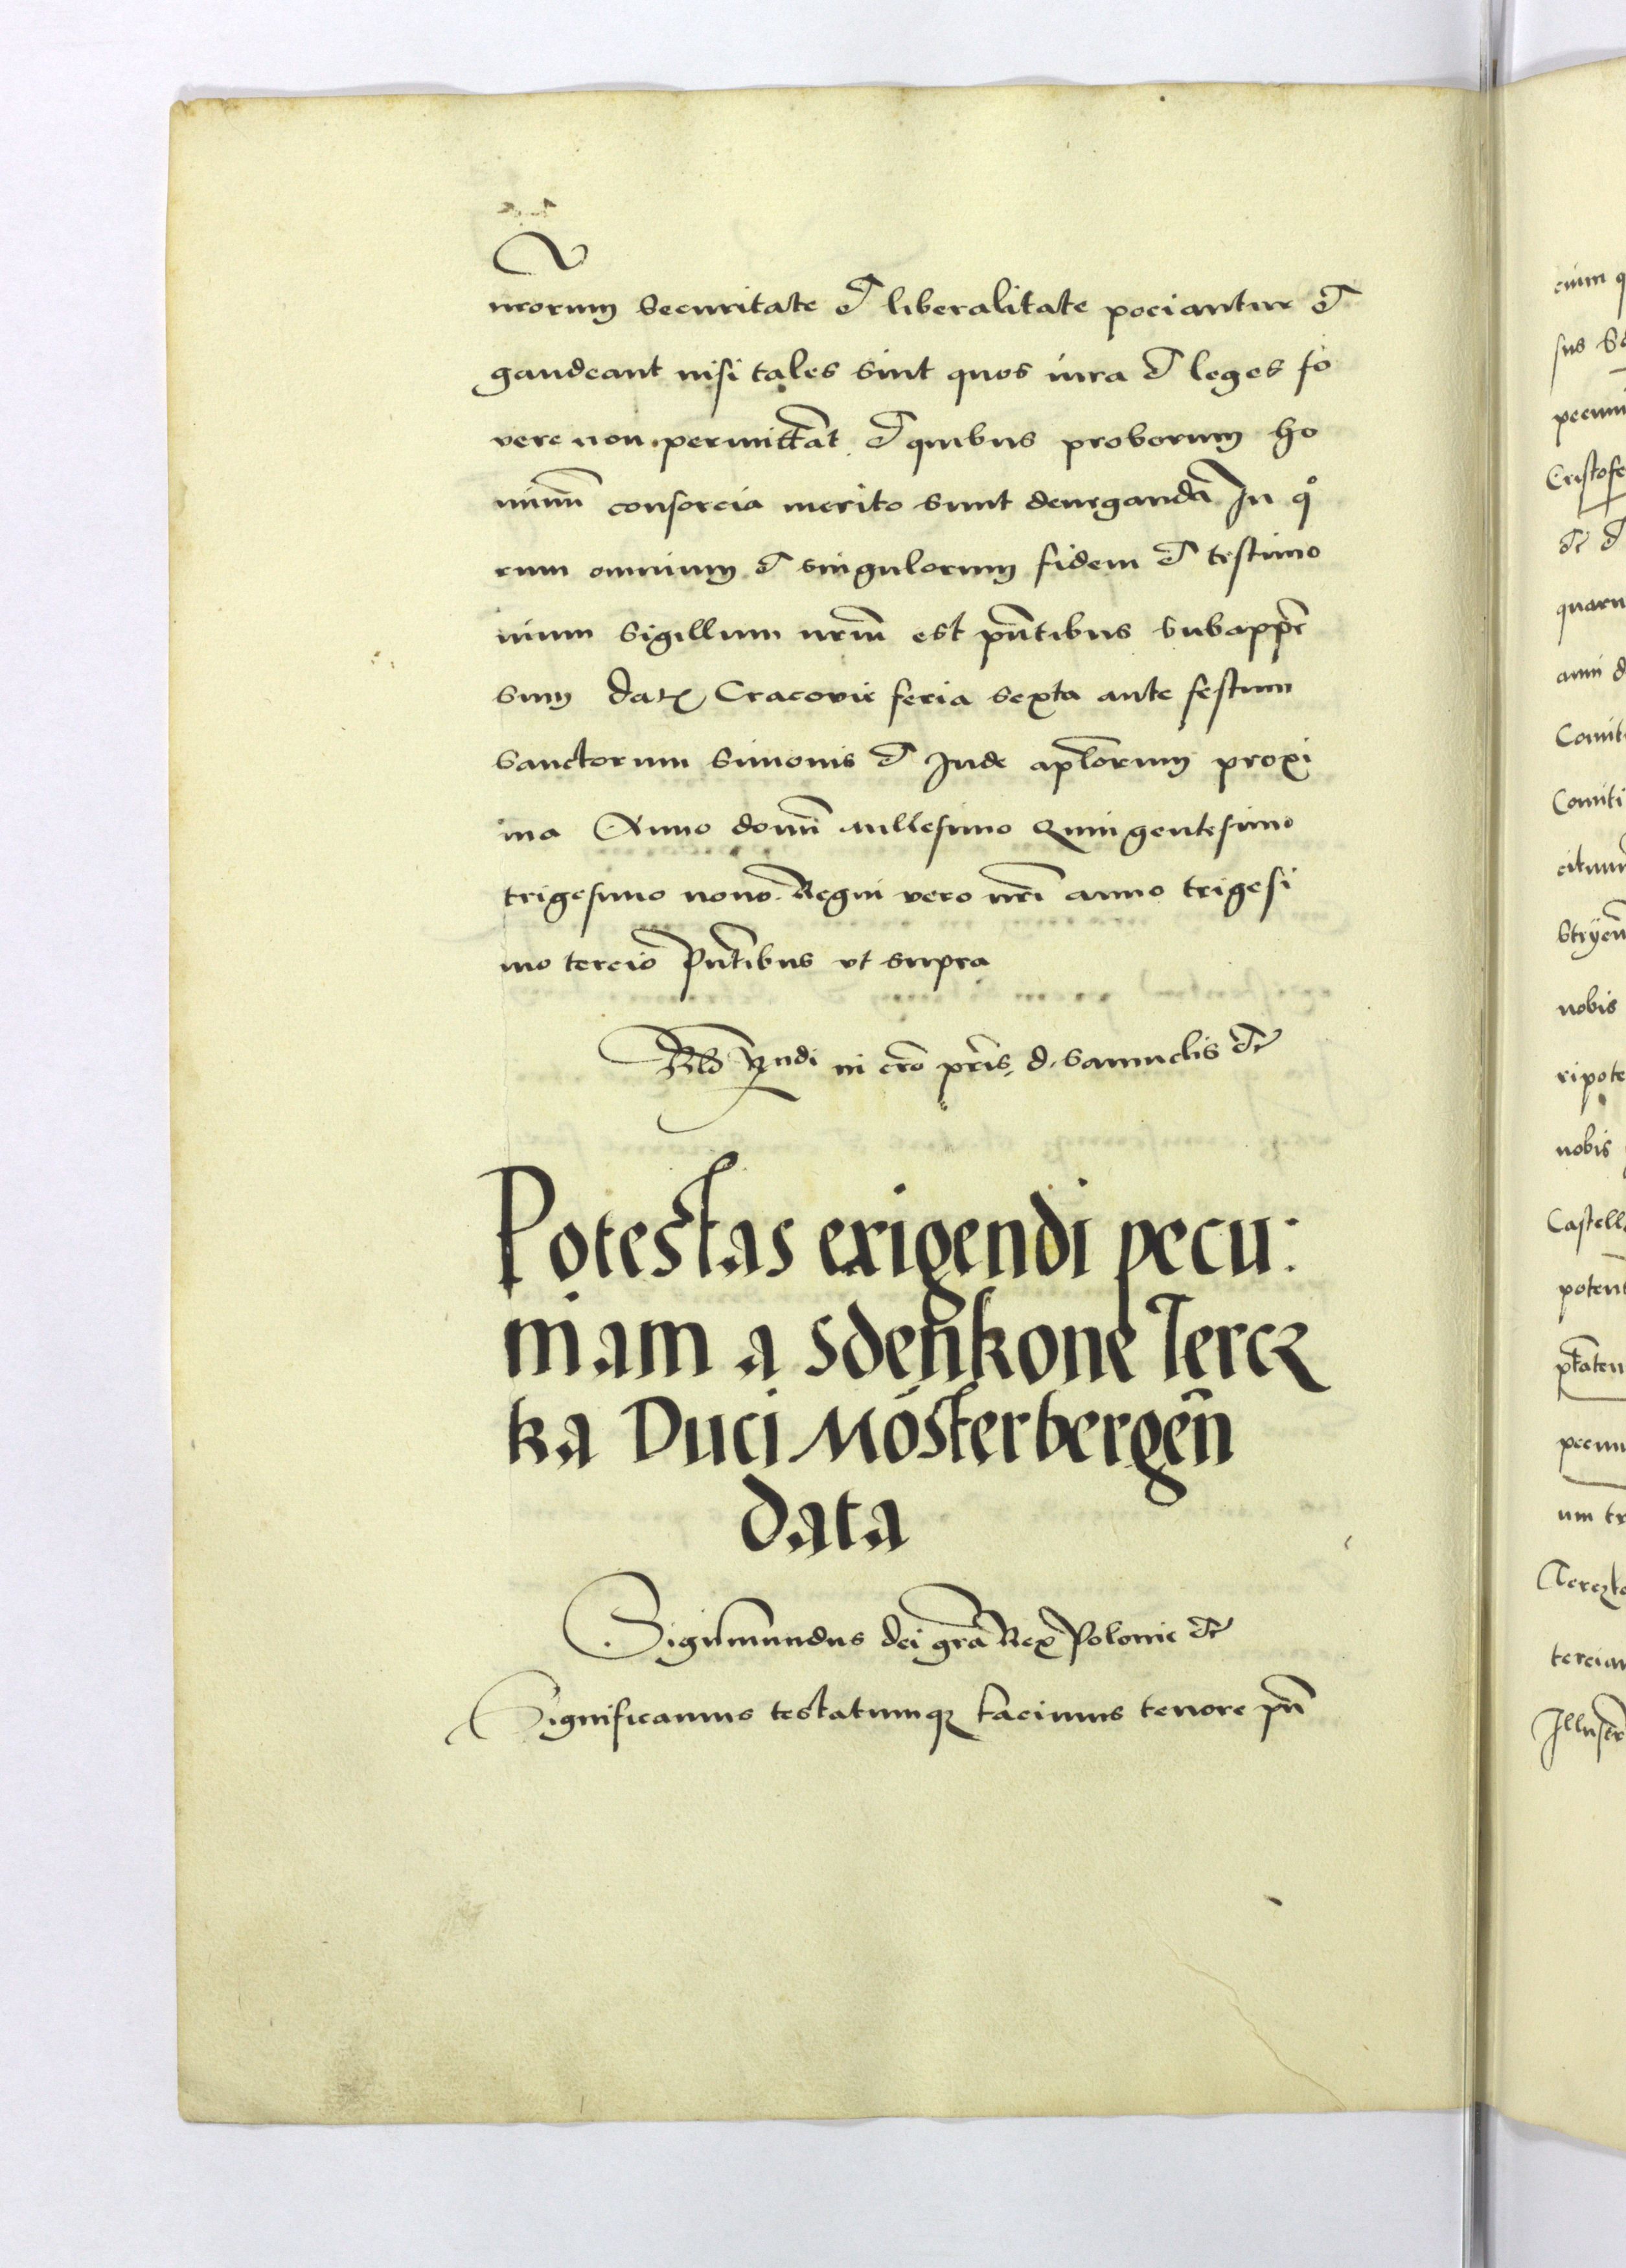 nrorum securitate et liberalitate pociantur et
gaudeant nisi tales sint quos iura et leges fo
vere non permittāt et quibus proborum ho
minū consorcia merito sunt deneganda In qͦ
rum omnium et singulorum fidem et testimo
nium sigillum nrm̄ est pn̄tibus subappēn
sum datꝫ Cracovie feria sexta ante festum
sanctorum Simonis et Jude aplōrum proxi
ma Anno domī millesimo Quingentesimo
trigesimo nono. Regni vero nrī anno trigesi
mo tercio Pn̄tibus vt supra
Rndi in cro pris, d. Samuelis etc
Potestas exigendi pecu:
niam a Sdenkone Tercz
ka Duci Mósterbergeñ
data
Sigismundus dei grā Rex Polonie etc
Significamus testatumqꝫ facimus tenore pn̄
cuim q
sus
pecuni
Cristofe
etc et
quaru
anni d
Comit
Comiti
citum
Stryeñ
nobis
ripote
nobis
Castell
potent
ptaten
pecun
um tr
Terczk
tercian
Illustr